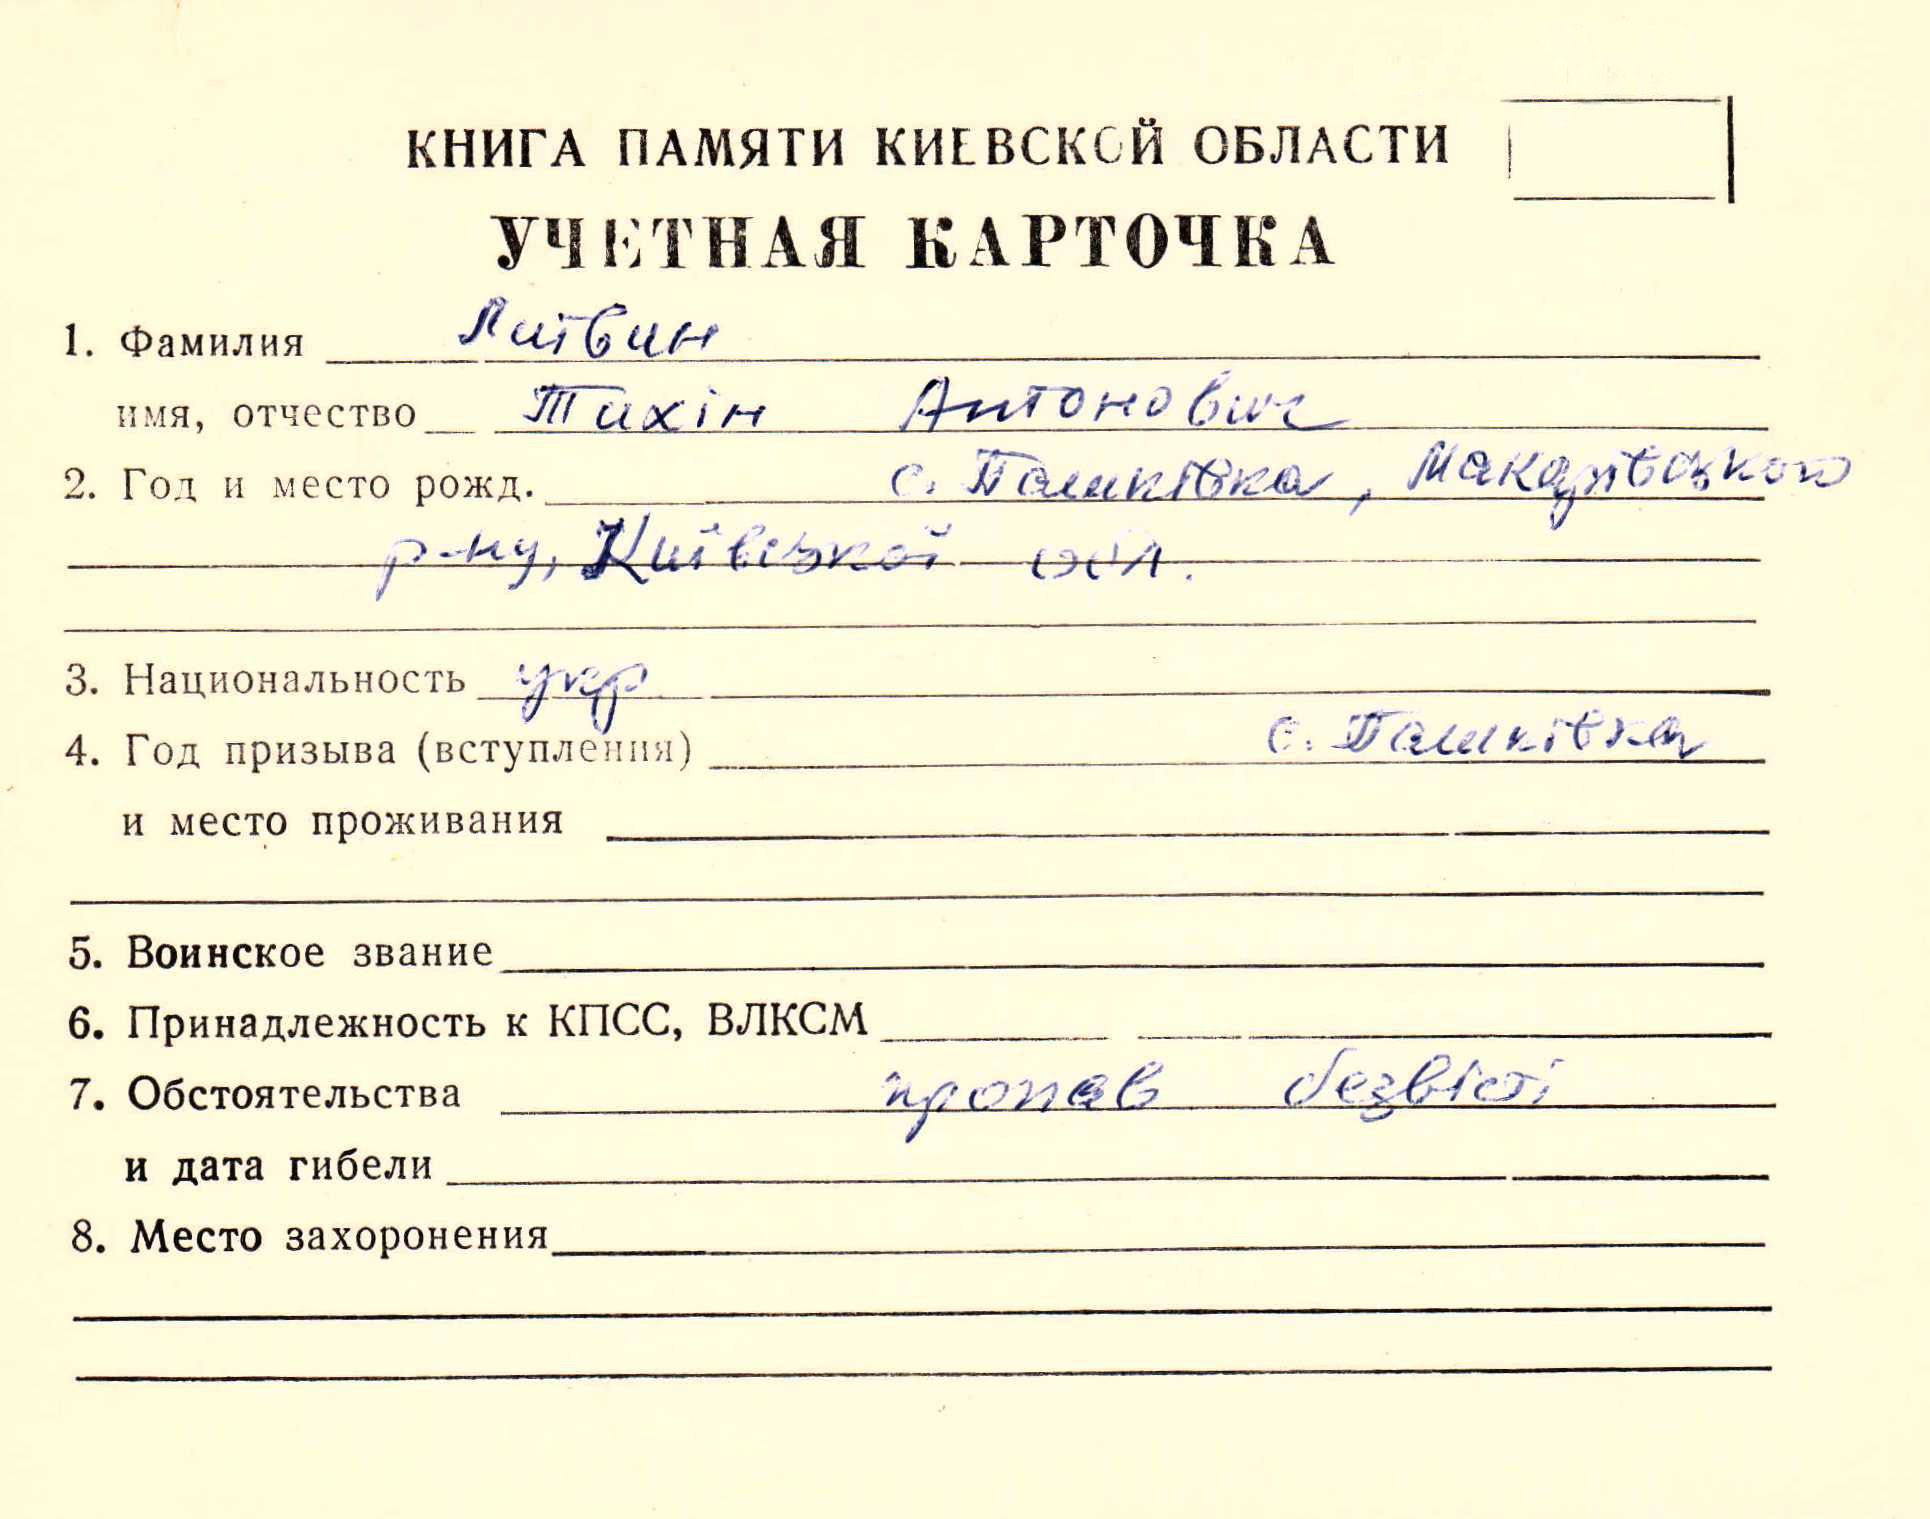 КНИГА ПАМЯТИ КИЕВСКОЙ ОБЛАСТИ
УЧЕТНАЯ КАРТОЧКА
1. Фамилия Литвин
имя, отчество Тихін Антонович
2. Год и место рожд. с. Пашківка, Макарівського
р-ну, Київської обл.
3. Национальность укр
4. Год призыва (вступления) с. Пашківка
и место проживания
5. Воинское звание
6. Принадлежность к КПСС, ВЛКСМ
7. Обстоятельства пропав безвісті
и дата гибели
8. Место захоронения